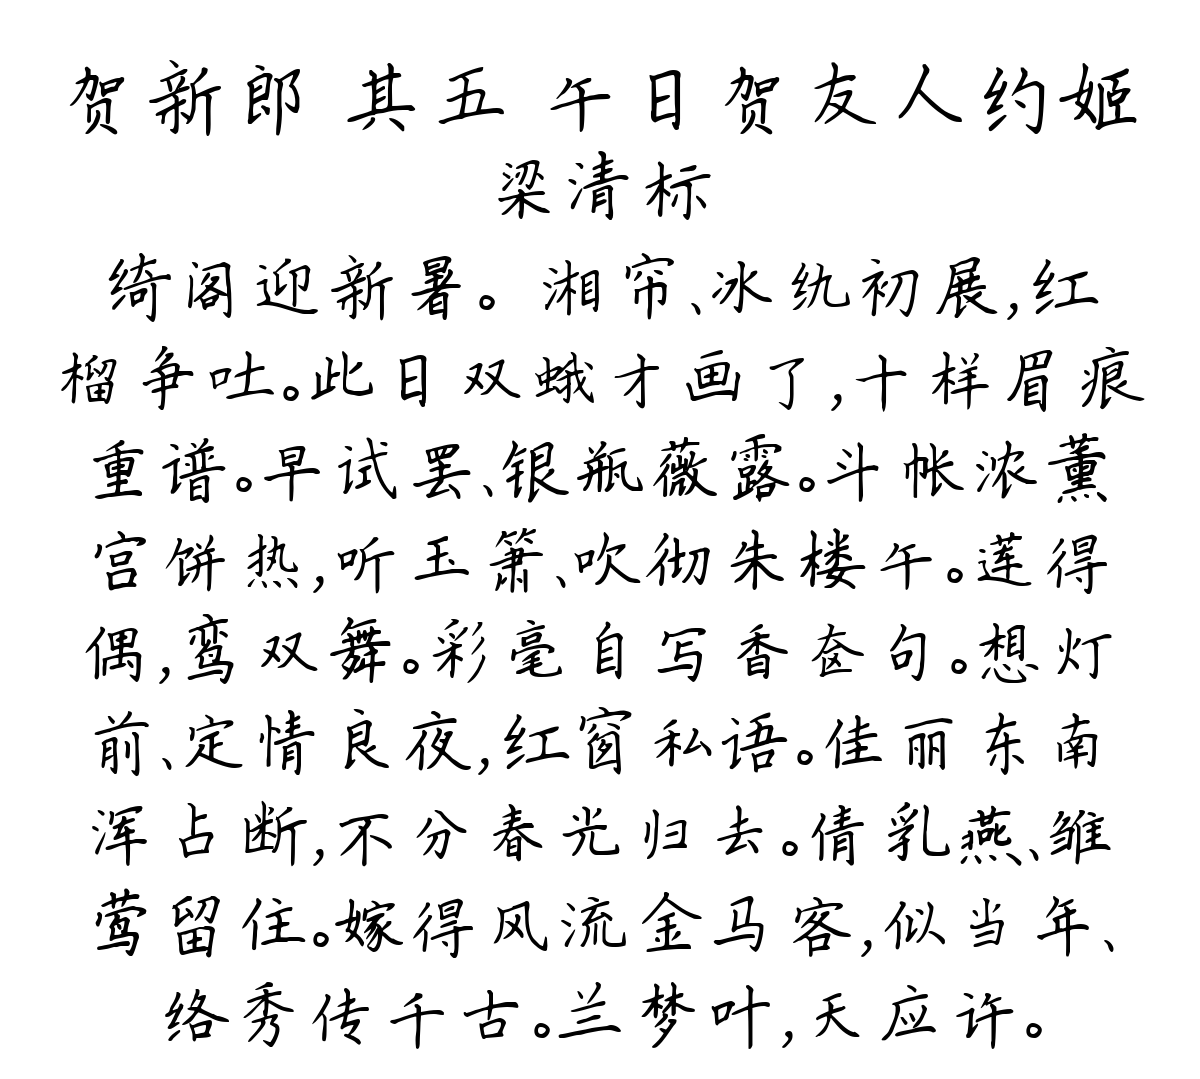 贺新郎 其五 午日贺友人约姬
梁清标
绮阁迎新暑。湘帘、冰纨初展,红
榴争吐。此日双蛾才画了,十样眉痕
重谱。早试罢、银瓶薇露。斗帐浓薰
宫饼热,听玉箫、吹彻朱楼午。莲得
偶,鸾双舞。彩毫自写香奁句。想灯
前、定情良夜,红窗私语。佳丽东南
浑占断,不分春光归去。倩乳燕、雏
莺留住。嫁得风流金马客,似当年、
络秀传千古。兰梦叶,天应许。